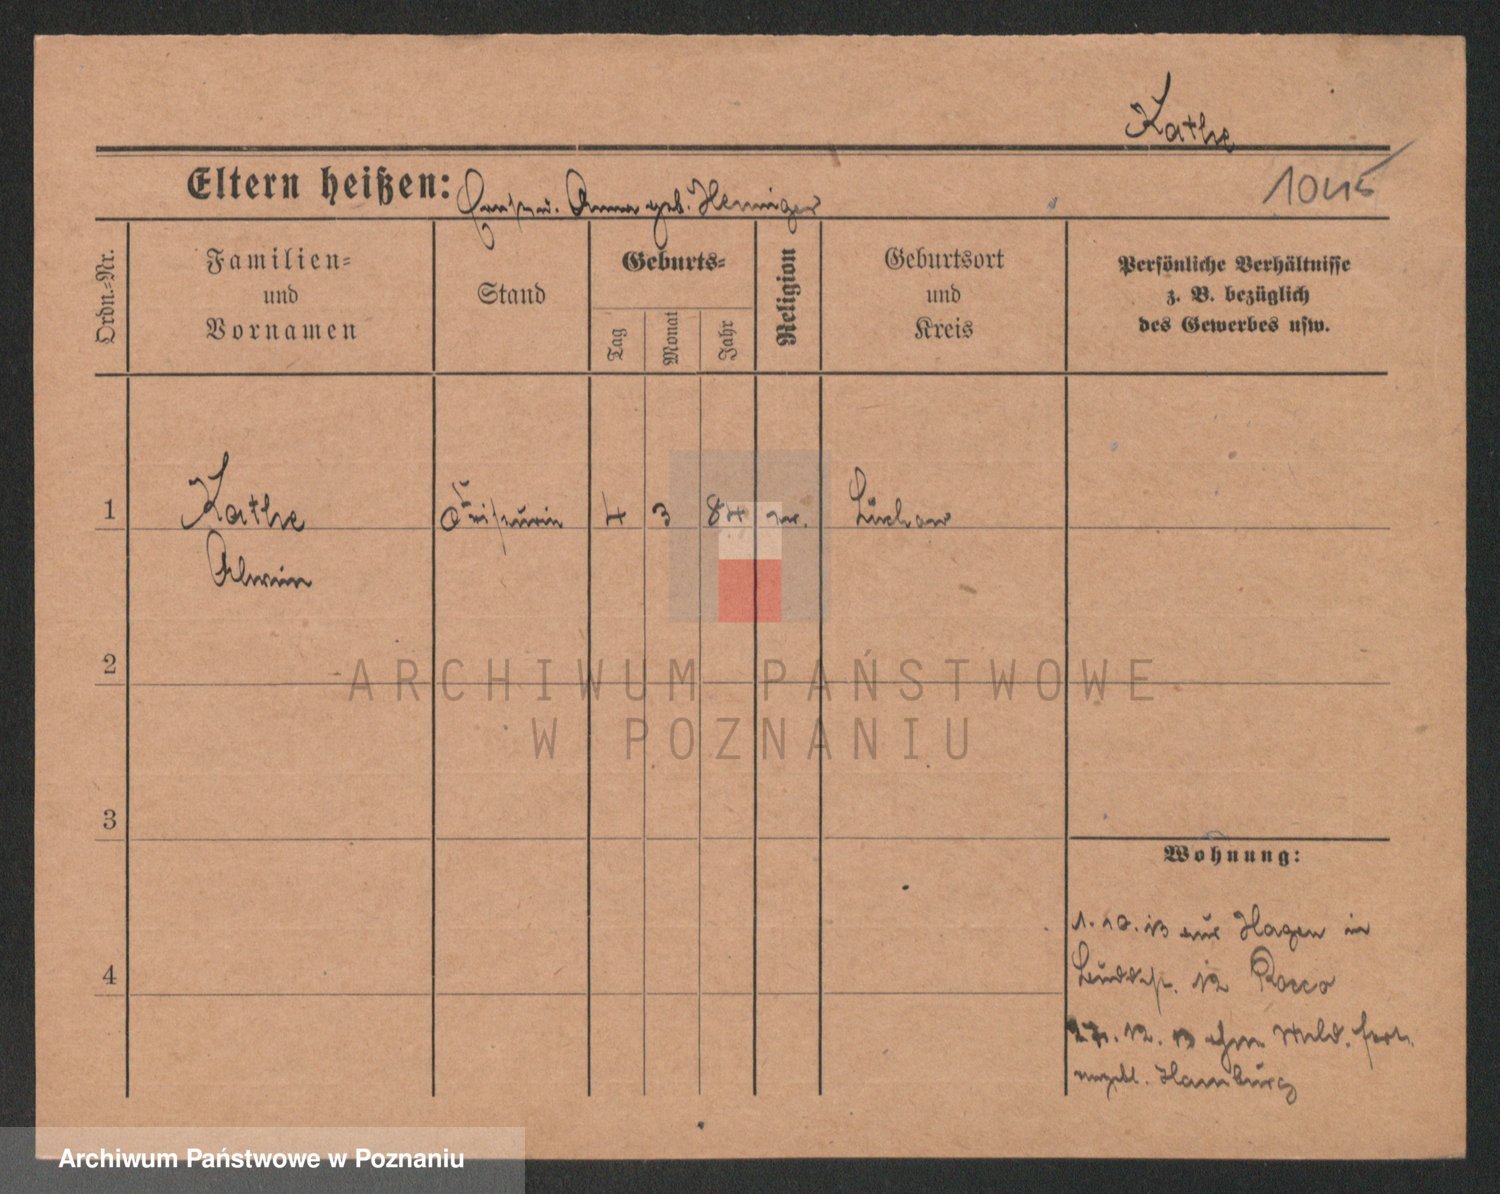 Kathe
1045
Eltern heißen: Anna geb. Henniger
Ordn.-Nr.
Familien-
und
Vornamen
Stand
Geburts-
Tag
Monat
Jahr
Religion
Geburtsort
und
Kreis
Persönliche Verhältnisse
z. B. bezüglich
des Gewerbes usw.
1
Kathe
Alwin
4
3
84
Lüchow
2
3
4
Wohnung:
1. 10. 13 aus Hagen in
12 Rocco
27. 12. 13 ohne Meld. fort
angebl. Hamburg
ARCHIWUM PAŃSTWOWE
W POZNANIU
Archiwum Państwowe w Poznaniu